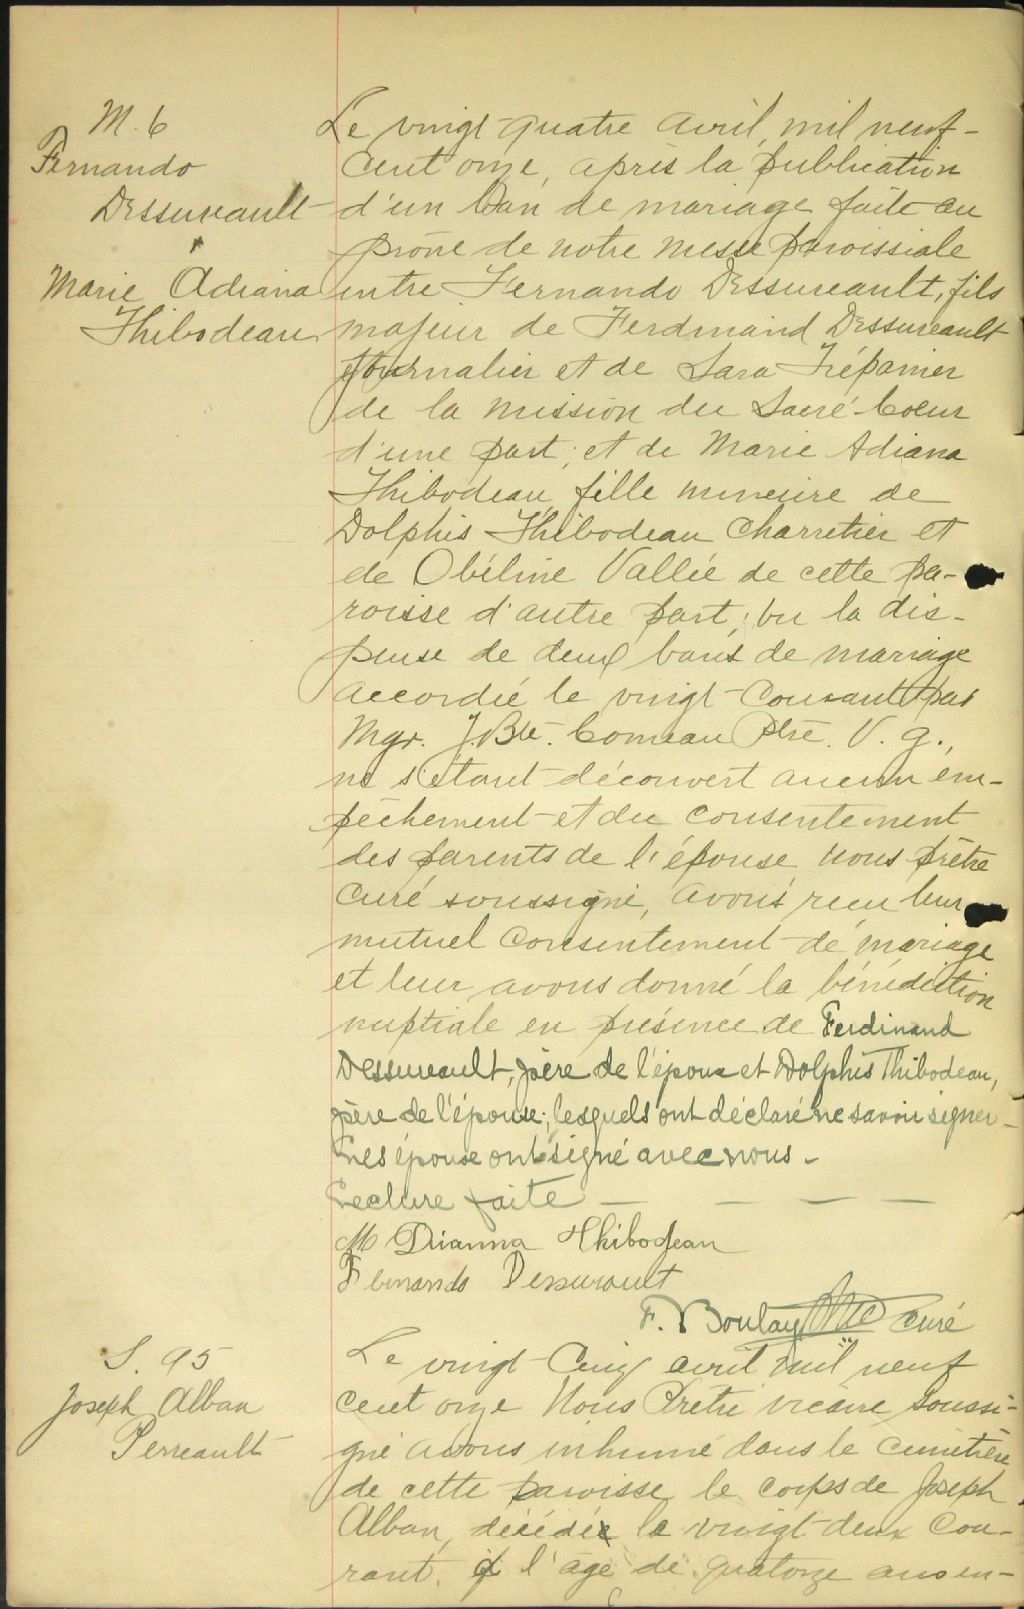 M. 6
Fernando
Dessureault
&
Marie Adiana
Thibodeau
Le vingt-quatre avril, mil neuf-
cent onze, après la publication
d'un ban de mariage faite au
prône de notre messe paroissiale
entre Fernando Dessureault, fils
majeur de Ferdinand Dessureault
journalier et de Sara Trépanier
de la mission du Sacré-Coeur
d'une part; et de Marie Adiana
Thibodeau, fille mineure de
Dolphis Thibodeau charretier et
de Obéline Vallée de cette pa-
roisse d'autre part; vu la dis-
pense de deux bans de mariage
accordée le vingt-courant par
Mgr. J. Bte. Comeau Ptre. V. G.,
ne s'étant découvert aucun em-
pêchement et du consentement
des parents de l'épouse, nous prêtre
curé soussigné, avons reçu leur
mutuel consentement de mariage
et leur avons donné la bénédiction
nuptiale en présence de Ferdinand
Dessureault, père de l'époux et Dolphis Thibodeau,
père de l'épouse; lesquels ont déclaré ne savoir signer-
Les époux ont signé avec nous-
Lecture faite
M Dianna Thibodeau
Fernando Dessurault
F. Boulay Ptre Curé
S. 95
Joseph Alban
Perreault
Le vingt-cinq avril mil neuf
cent onze Nous Prêtre vicaire soussi-
gné avons inhumé dans le cimetière
de cette paroisse le corps de Joseph
Alban, décédé le vingt-deux cou-
rant, à l'âge de quatorze ans en-